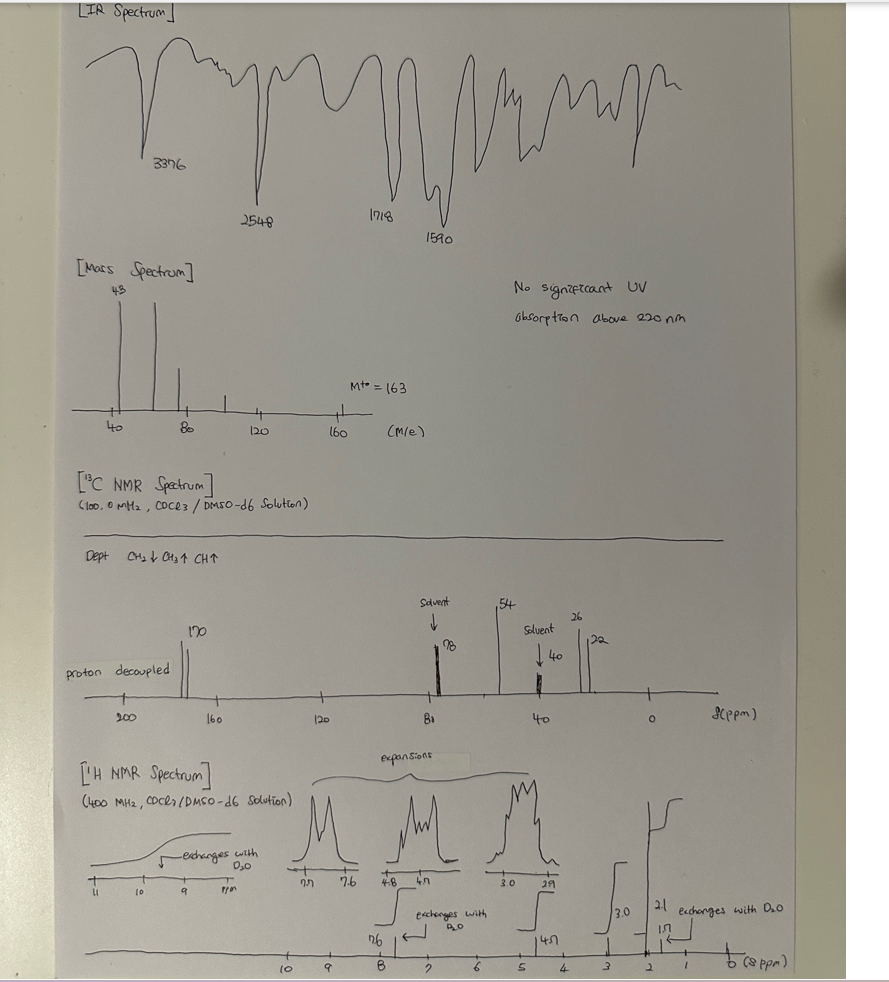 [IR Spectrum]
3376
2548
1718
1590
[Mass Spectrum]
43
No significant UV
absorption above 220 nm
M+• = 163
40 80 120 160 (M/e)
[¹³C NMR Spectrum]
(100.0 MHz, CDCl3 / DMSO-d6 Solution)
Dept CH2↓ CH3↑ CH↑
Solvent
54
Solvent
26
170
78
40
22
proton decoupled
200 160 120 80 40 0 δ(ppm)
expansions
[¹H NMR Spectrum]
(400 MHz, CDCl3/DMSO-d6 Solution)
exchanges with
D2O
11 10 9 ppm
7.7 7.6
4.8 4.7
3.0 2.9
exchanges with
D2O
7.6
4.7
3.0
2.1
exchanges with D2O
1.7
10 9 8 7 6 5 4 3 2 1 0 (δ ppm)